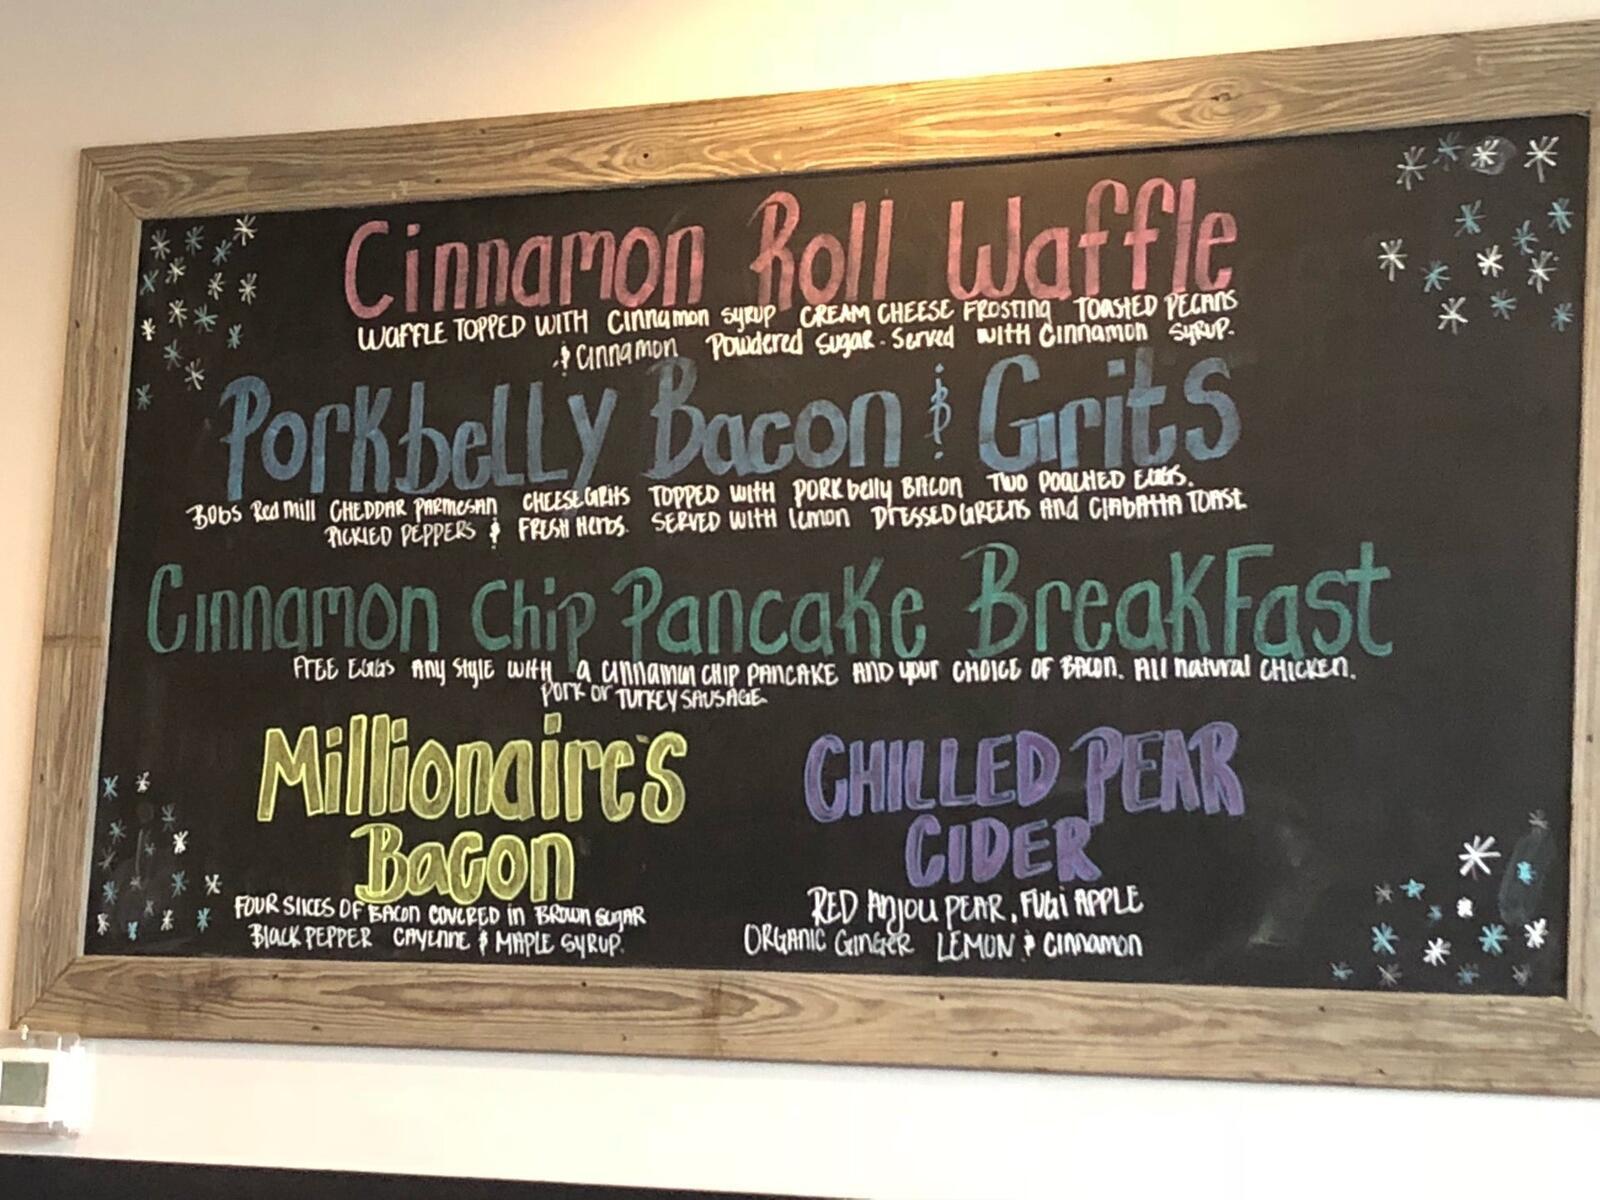 Cinnamon Roll Waffle
WAFFLE TOPPED WITH Cinnamon SYRUP CREAM CHEESE FROSTING TOASTED PECANS
& Cinnamon Powdered Sugar. Served with Cinnamon SYRUP.
Porkbelly Bacon & Grits
BOBS Red mill CHEDDAR PARMESAN CHEESE GRITS TOPPED WITH PORK belly BACON TWO POACHED EGGS.
PICKLED PEPPERS & FRESH Herbs. SERVED WITH lemon DRESSED GREENS AND CIABATTA TOAST
Cinnamon Chip Pancake BreakFast
FREE EGGS Any Style with a Cinnamon CHIP PANCAKE AND your CHOICE OF BACON. All natural CHICKEN.
PORK or TURKEY SAUSAGE.
Millionaire's CHILLED PEAR
Bacon CIDER
FOUR SLICES OF BACON COVERED in BROWN SUGAR RED Anjou PEAR, FUGI APPLE
Black PEPPER CAYENNE & MAPLE SYRUP. ORGANIC GINGER LEMON & Cinnamon